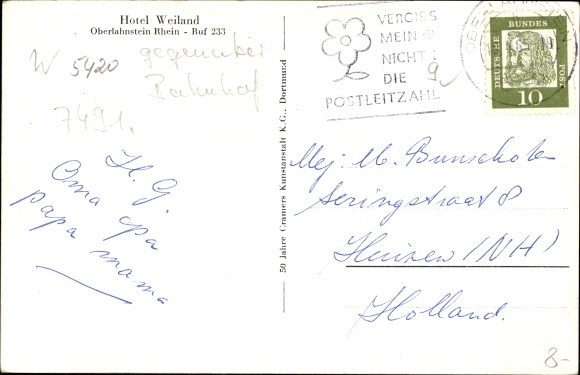 Hotel Weiland
Oberlahnstein Rhein - Ruf 233
W 5420 gegenüber
Bahnhof
7491.
H. G.
Oma opa
papa mama
50 Jahre Cramers Kunstanstalt K.G., Dortmund
VERGISS
MEIN
NICHT
DIE
POSTLEITZAHL
DEUTSCHE BUNDES POST
10
Mej: M. Bunschoten
Seringstraat 8
Huizen (NH)
Holland.
8-